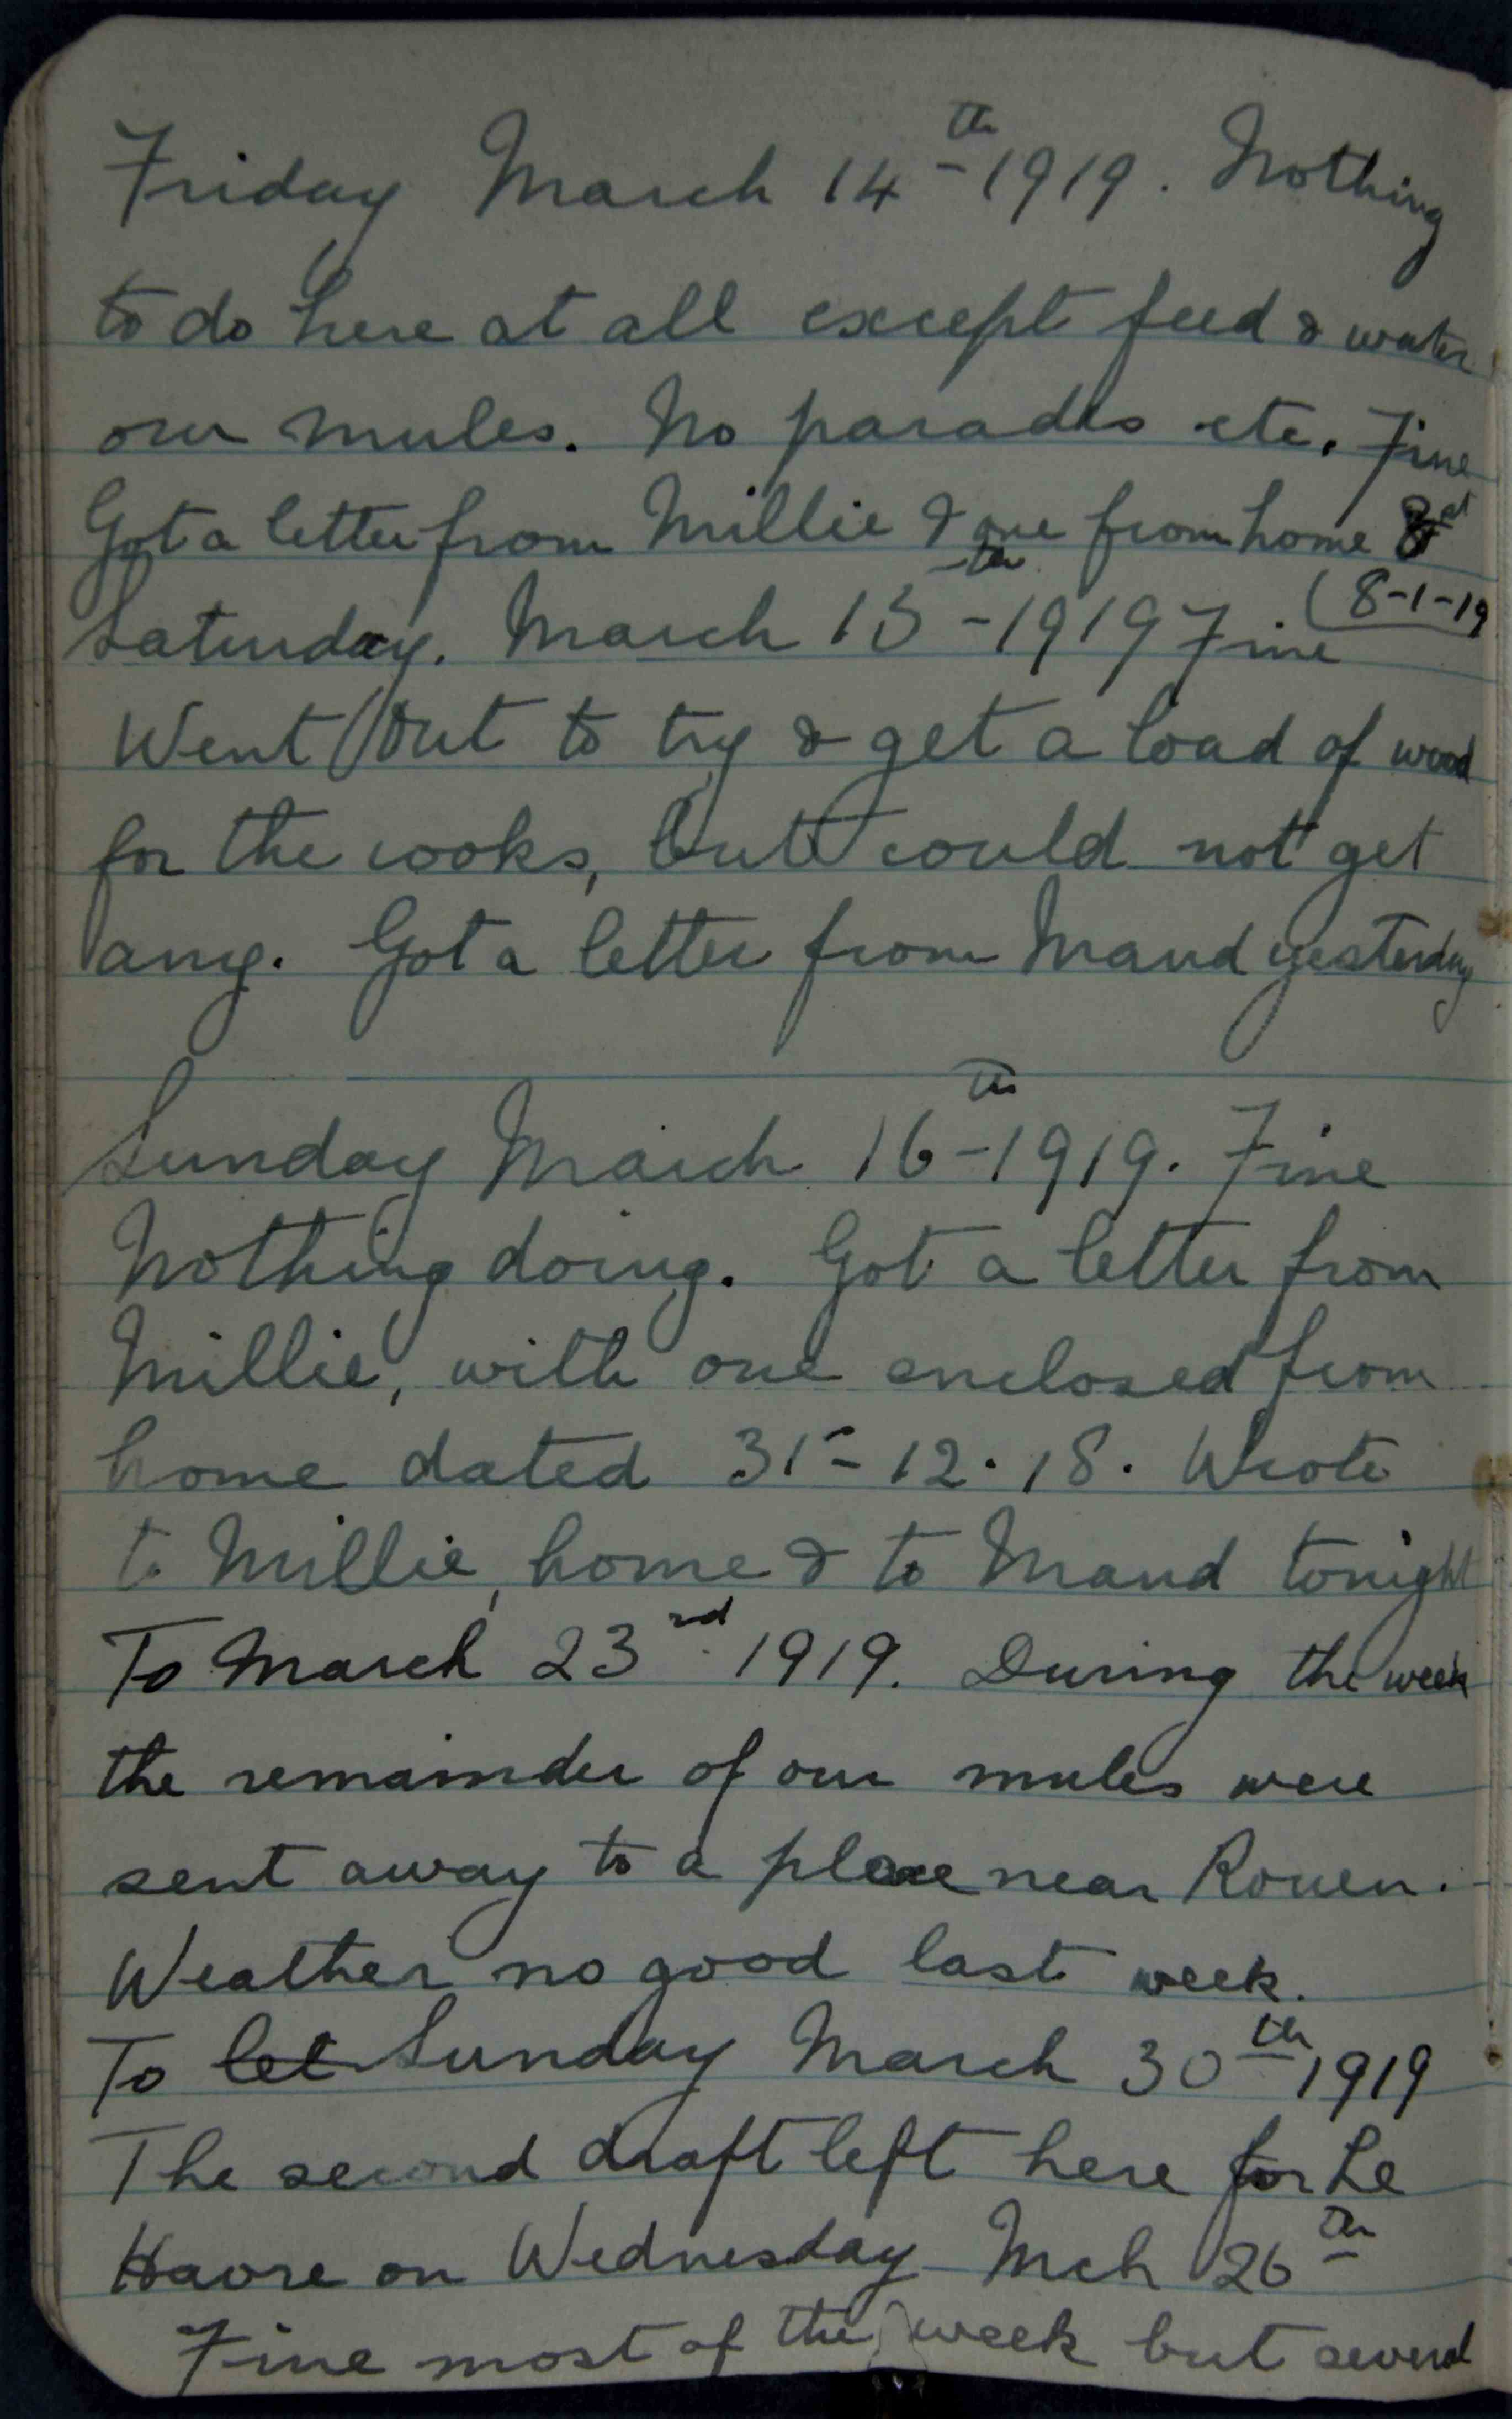 Friday March 14th 1919. Nothing
to do here at all except feed & water
our mules. No parades etc. Fine
Got a letter from Millie & one from home
(8-1-19
Saturday. March 15th 1919 Fine
Went out to try & get a load of wood
for the cooks, but could not get
any. Got a letter from Maud yesterday
Sunday March 16th 1919. Fine
Nothing doing. Got a letter from
Millie, with one enclosed from
home dated 31-12.18. Wrote
to Millie, home & to Maud tonight
To March 23rd 1919. During the week
the remainder of our mules were
sent away to a place near Rouen.
Weather no good last week.
To let Sunday March 30th 1919
The second draft left here for Le
Havre on Wednesday Mch 26th
Fine most of the week but several